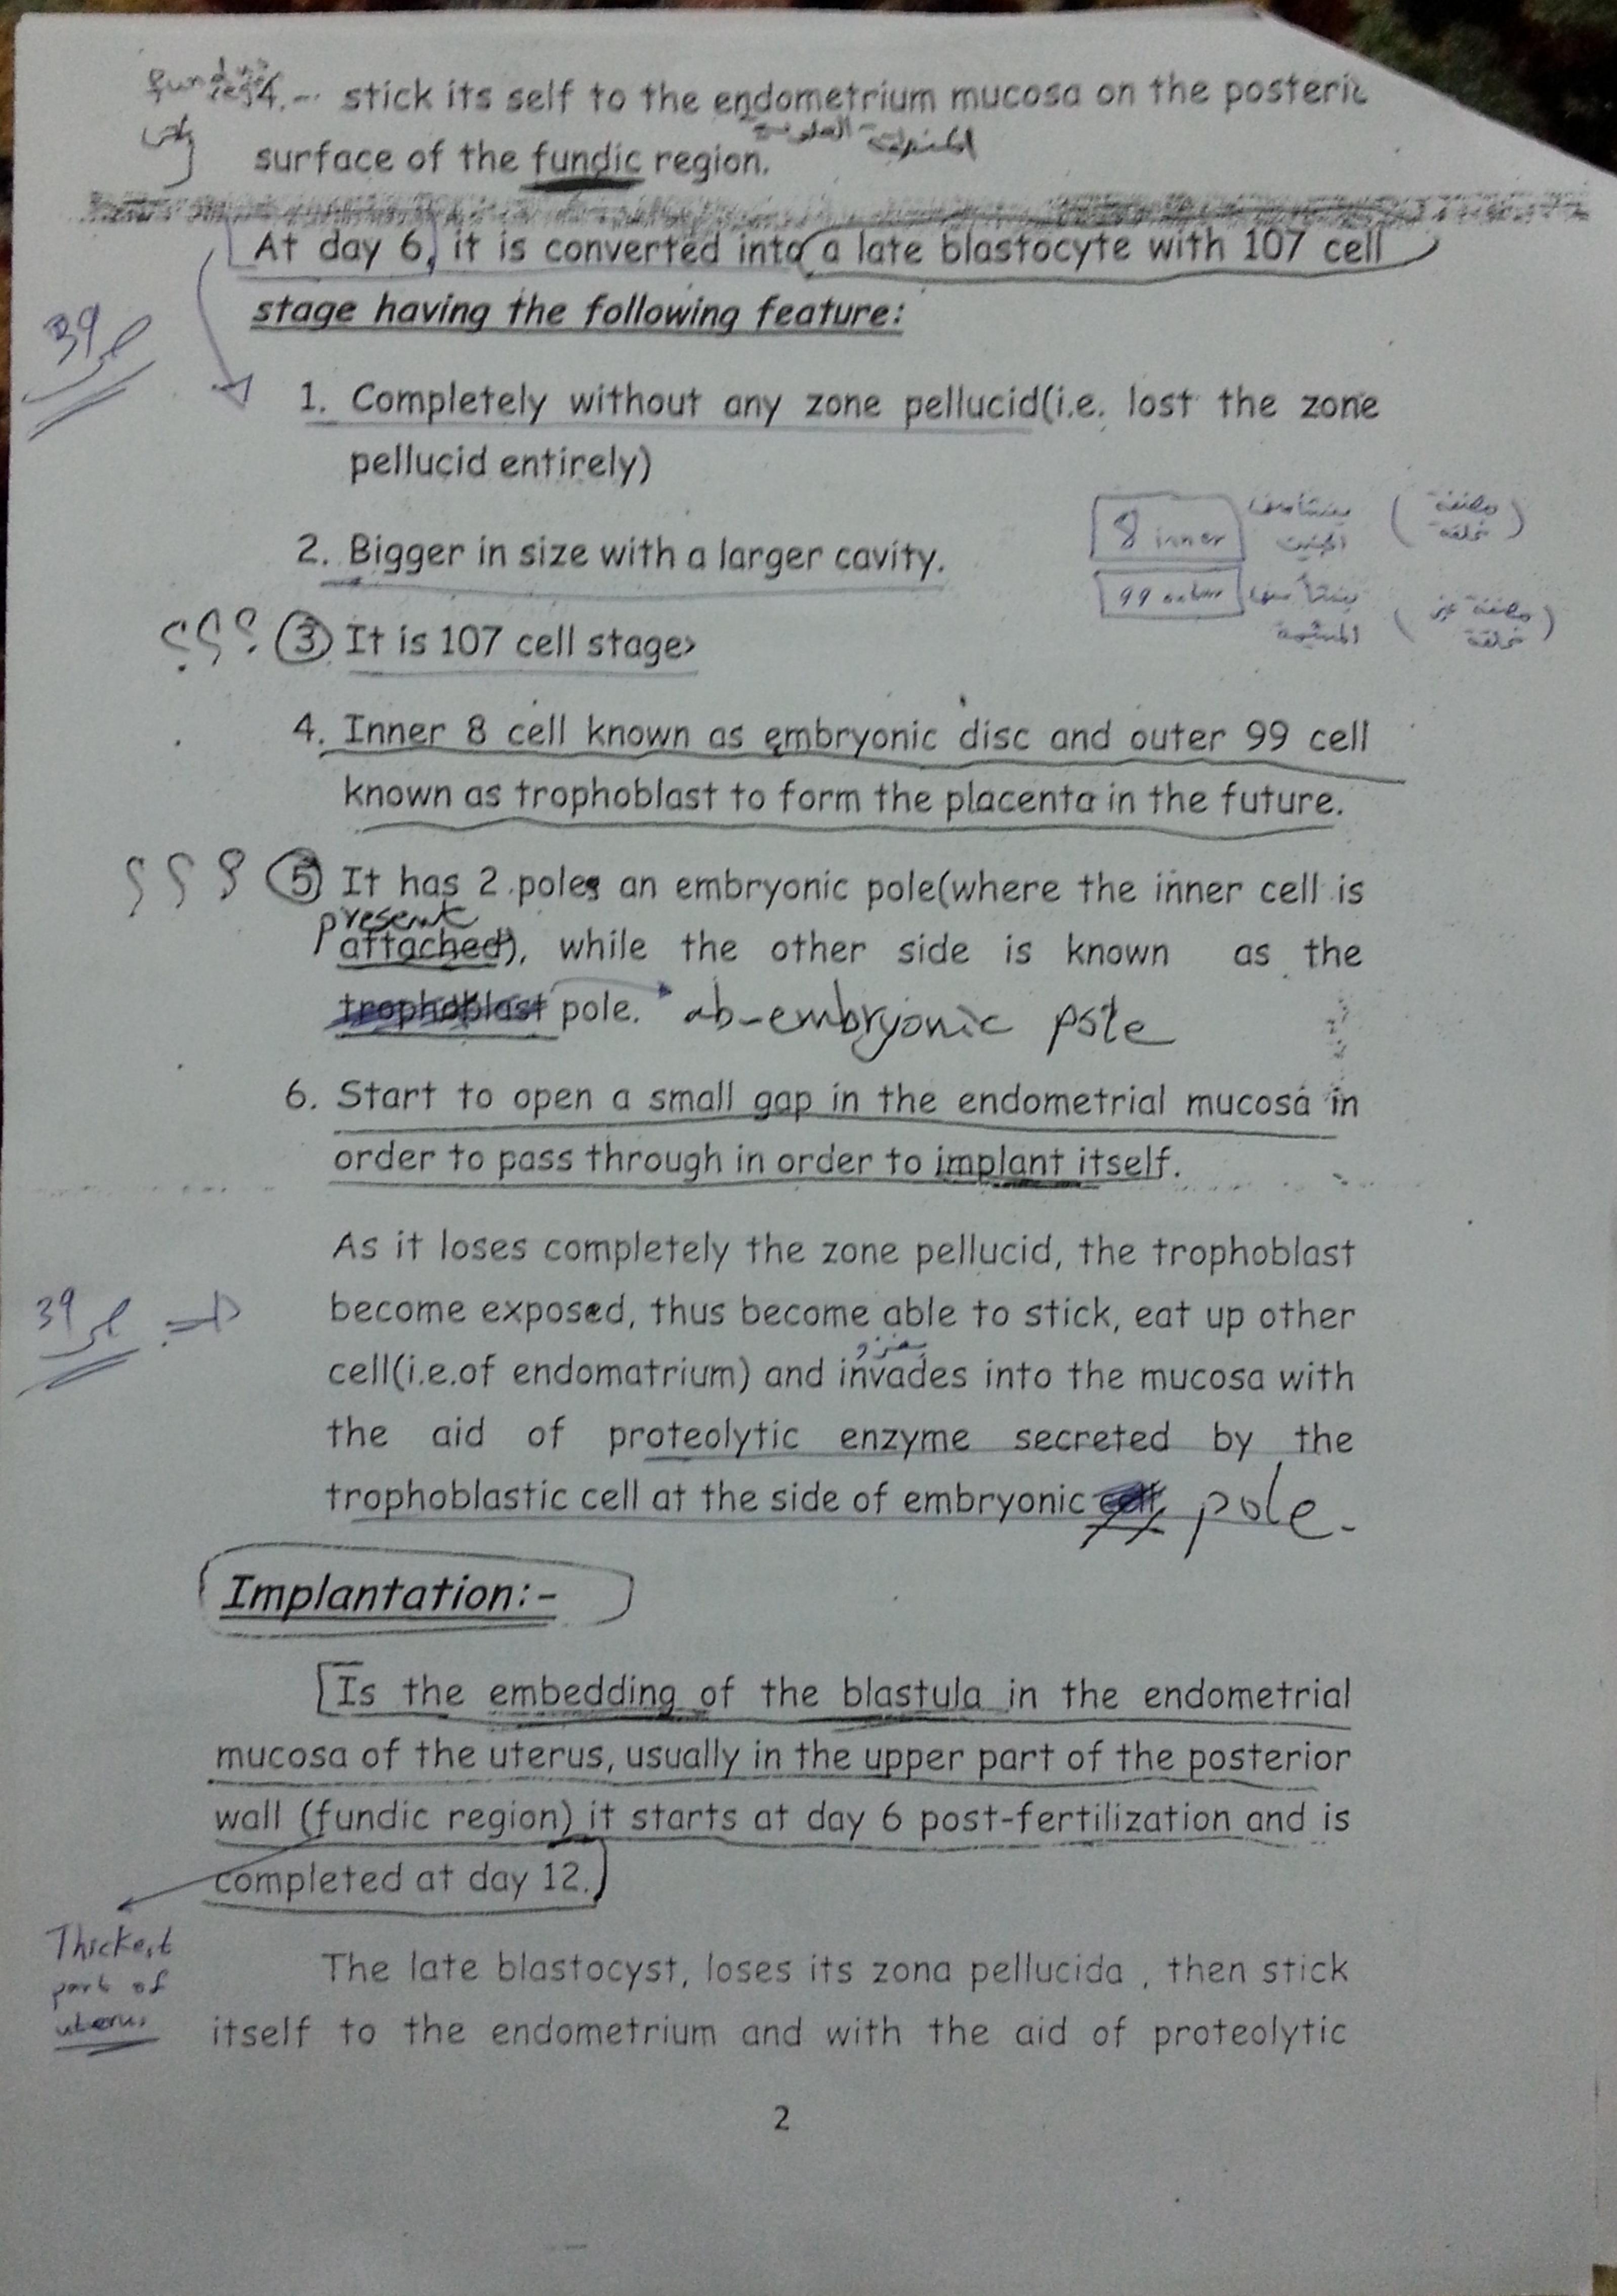 4.- stick its self to the endometrium mucosa on the posteri
surface of the fundic region.
At day 6, it is converted into a late blastocyte with 107 cell
stage having the following feature:
39
1. Completely without any zone pellucid(i.e. lost the zone
pellucid entirely)
8 inner ينشأ منها الجنين (مضغة مخلقة)
2. Bigger in size with a larger cavity.
99 outer ينشأ منها المشيمة (مضغة غير مخلقة)
؟؟؟ 3 It is 107 cell stage>
4. Inner 8 cell known as embryonic disc and outer 99 cell
known as trophoblast to form the placenta in the future.
؟؟؟ 5 It has 2 poles an embryonic pole(where the inner cell is
present
attached), while the other side is known as the
trophoblast pole. ab-embryonic pole
6. Start to open a small gap in the endometrial mucosa in
order to pass through in order to implant itself.
As it loses completely the zone pellucid, the trophoblast
39 become exposed, thus become able to stick, eat up other
يغزو
cell(i.e.of endomatrium) and invades into the mucosa with
the aid of proteolytic enzyme secreted by the
trophoblastic cell at the side of embryonic cell, pole.
Implantation:-
Is the embedding of the blastula in the endometrial
mucosa of the uterus, usually in the upper part of the posterior
wall (fundic region) it starts at day 6 post-fertilization and is
completed at day 12.
Thickest
part of
uterus
The late blastocyst, loses its zona pellucida , then stick
itself to the endometrium and with the aid of proteolytic
2